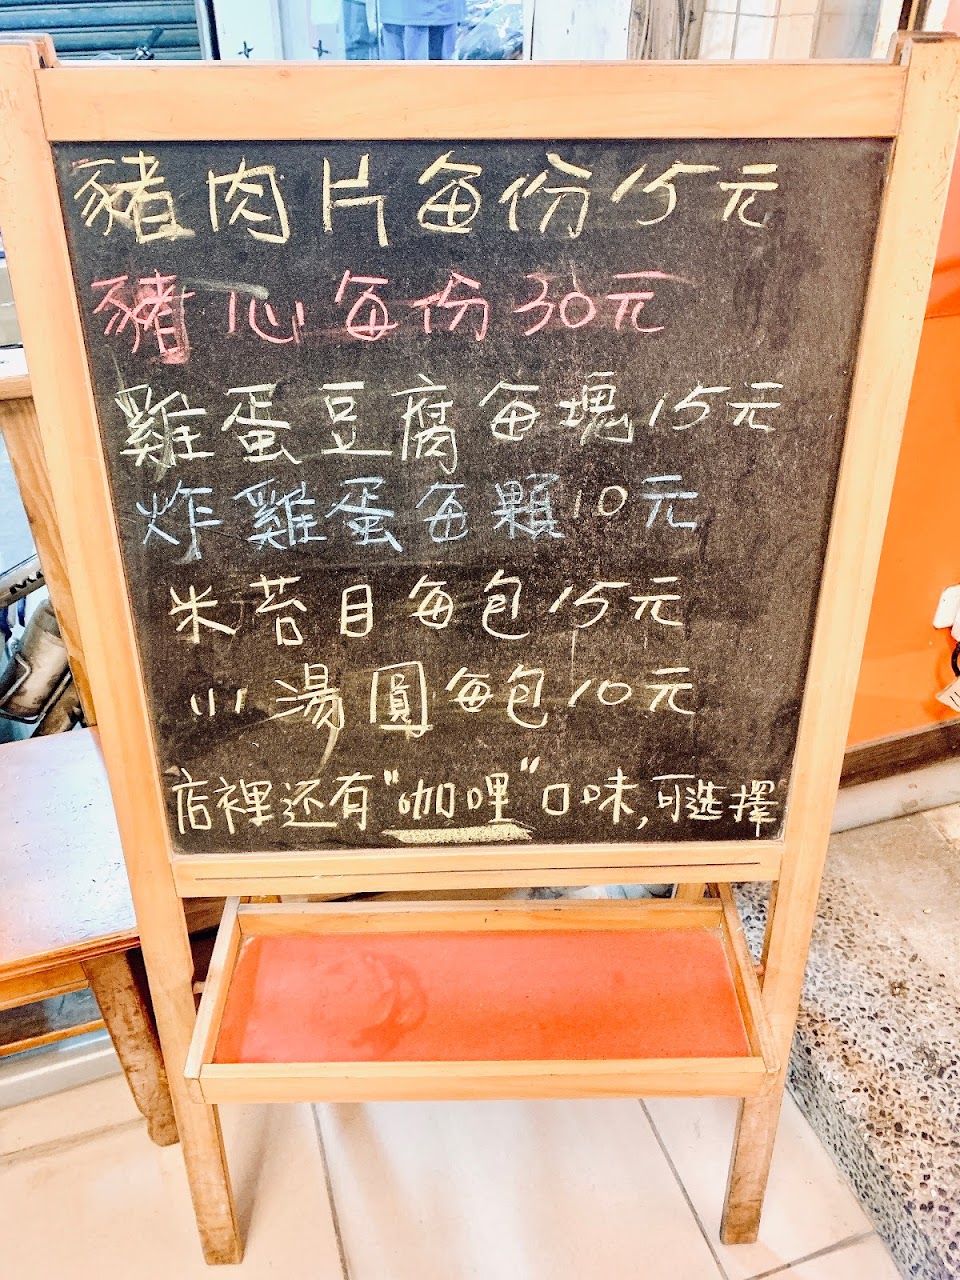 豬肉片每份15元
豬心每份30元
雞蛋豆腐每塊15元
炸雞蛋每顆10元
米苔目每包15元
小湯圓每包10元
店裡还有"咖哩"口味,可選擇